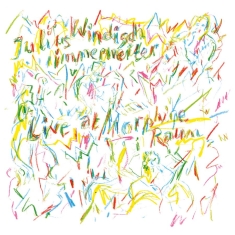 Julius Windisch
Immerweiter
Live at Morphine
Raum